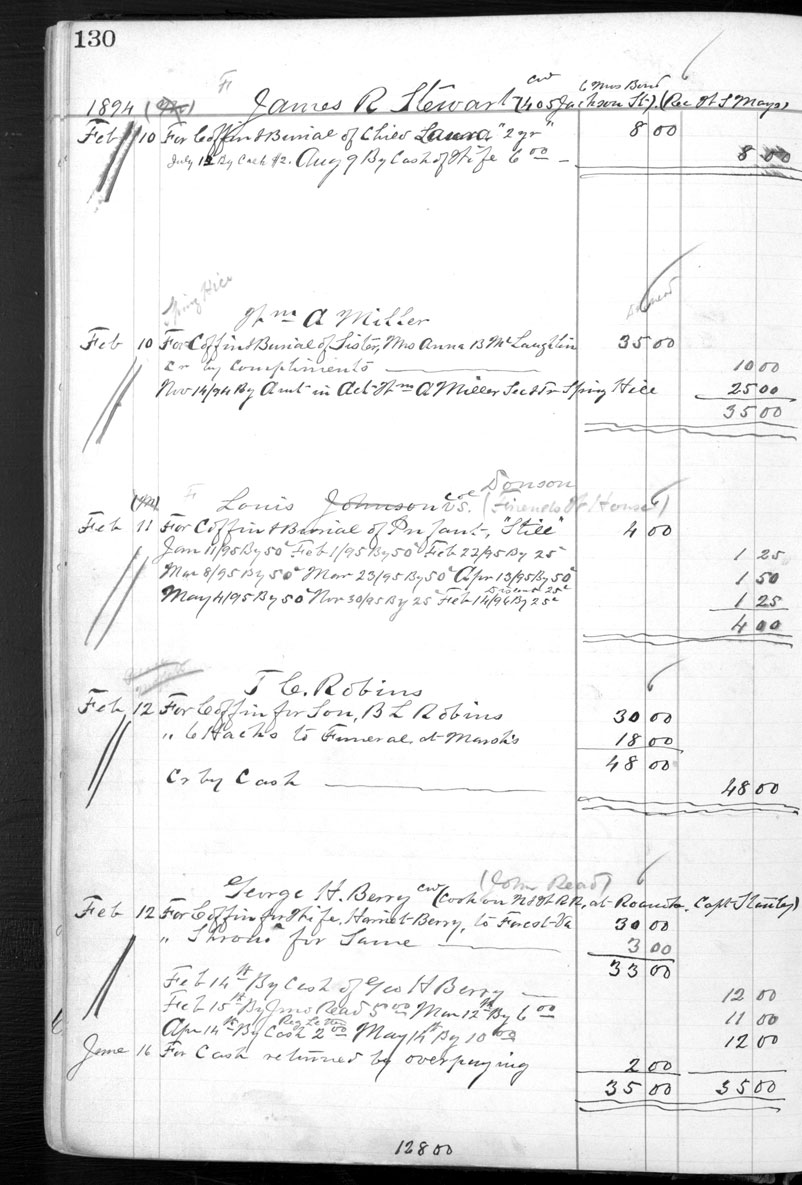 130
1894 James R Stewart col (405 Jackson St). (Rec of S Mays)
6 Mrs Bond
Feb 10 For Coffin & Burial of Child Laura "2 yr" 8 00
July 12 By Cash $2. Aug 9 By Cash of Wife 6 00 — 8 00
Spring Hill
Wm A Miller
Feb 10 For Coffin & Burial of Sister, Mrs Anna B McLaughlin 35 00
Cr by Compliments 10 00
Nov 14/94 By Amt in Act Wm A Miller Spring Hill 25 00
35 00
Donson
Louis Johnson col vs. (Friends of House)
Feb 11 For Coffin & Burial of Infant, "Still" 4 00
Jan 11/95 By 50c Feb 1/95 By 50c Feb 22/95 By 25c 1 25
Mar 8/95 By 50c Mar 23/95 By 50c Apr 13/95 By 50c 1 50
Discount 25c
May 4/95 By 50c Nov 30/95 By 25c Feb 14/96 By 25c 1 25
4 00
T C. Robins
Feb 12 For Coffin for Son, B L Robins 30 00
" 6 Hacks to Funeral at Marsh's 18 00
48 00
Cr by Cash 48 00
(John Read)
George H. Berry col (Cook on N & W RR, at Roanoke. Capt Stanley)
Feb 12 For Coffin for Wife, Harriet Berry, to Forest Va 30 00
" Shroud for Same 3 00
33 00
Feb 14th By Cash of Geo H Berry — 12 00
Feb 15th By Jno Read 5 00 Mar 12th By 6 00 11 00
Reg Letter
Apr 14th By Cash 2 00 May 14th By 10 00 12 00
June 16 For Cash returned by overpaying 2 00
35 00 35 00
128 00